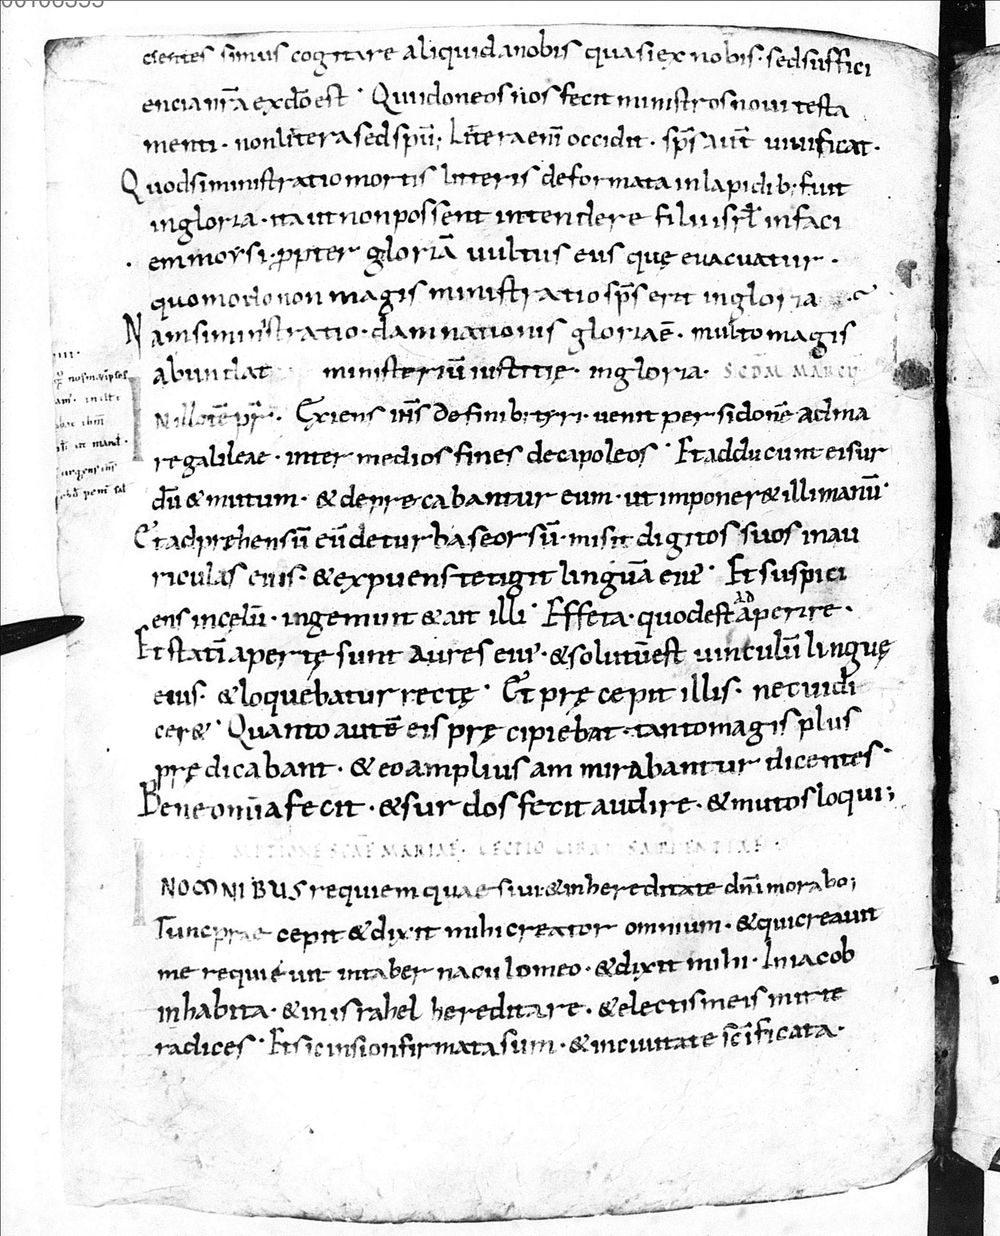 cientes simus cogitare aliquid anobis quasi ex nobis· sed suffici
encia nr̄a ex dō est· Qui idoneos nos fecit ministros noui testa
menti· non littera sed spū; Littera eni̅ occidit· sp̄s aut̄ uiuificat·
Quod si ministratio mortis litteris deformata in lapidib; fuit
in gloria· ita ut non possent intendere filii isrł in faci
em moysi· ppter gloriā uultus eius quę euacuatur·
quomodo non magis ministratio sp̄s erit in gloria
Nam si ministratio damnationis gloria ē· multo magis
abundat ministeriū iustitię in gloria· SCDM MARCU
N illo tē pr̄· Exiens ih̄s de finib; tyri· uenit per sidonē ad ma
re galileae· inter medios fines decapoleos· Et adducunt ei sur
dū & mutum· & deprecabantur eum· ut imponer& illi manū·
Et adprehensū eū de turba seorsū· misit digitos suos in au
riculas eius· & expuens tetigit linguā eius· Et suspici
ens in cęlū· ingemuit & ait illi· Effeta· quod est adperire·
Et statī apertę sunt aures eius· & solutū est uinculū linguę
eius· & loquebatur rectę· Et pręcepit illis· ne cui di
cer&· Quanto autē eis pręcipiebat· tanto magis plus
prędicabant· & eo amplius am mirabantur dicentes·
Bene omīa fecit· & surdos fecit audire· & mutos loqui;
SCAE MARIAE· LECTIO LIBRI SAPIENTIAE
IN OMNIBUS requiem quae siui & in hereditate dn̄i morabo;
Tunc prae cepit & dixit mihi creator omnium· & qui creauit
me requieuit in tabernaculo meo· & dixit mihi· In iacob
inhabita· & in israhel hereditare· & electis meis mitte
radices· Et sic in sion firmata sum· & in ciuitate sc̄ificata·